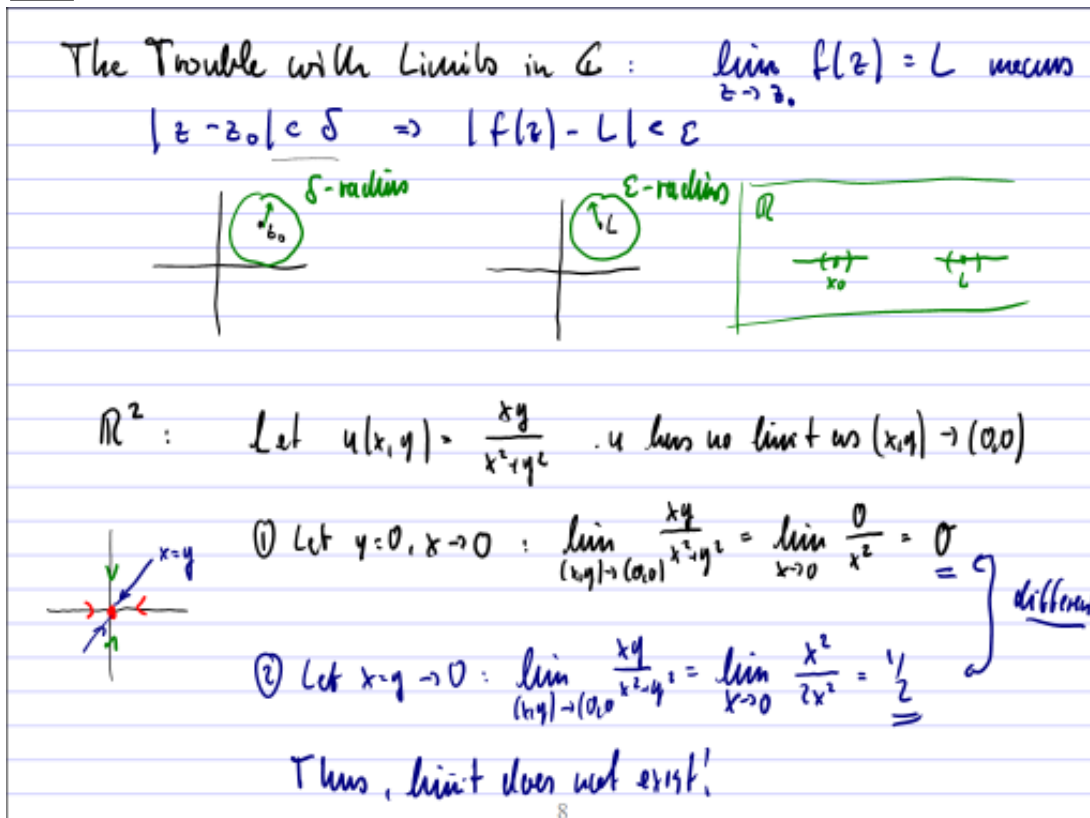 The Trouble with Limits in ℂ : lim_{z→z₀} f(z) = L means
|z - z₀| < δ ⇒ |f(z) - L| < ε
δ-radius
ε-radius
ℝ
z₀
L
x₀
L
ℝ² : Let u(x,y) = xy/(x²+y²) . u has no limit as (x,y) → (0,0)
① Let y=0, x→0 : lim_{(x,y)→(0,0)} xy/(x²+y²) = lim_{x→0} 0/x² = 0
x=y
differen
② Let x=y→0 : lim_{(x,y)→(0,0} xy/(x²+y²) = lim_{x→0} x²/2x² = 1/2
Thus, limit does not exist!
8